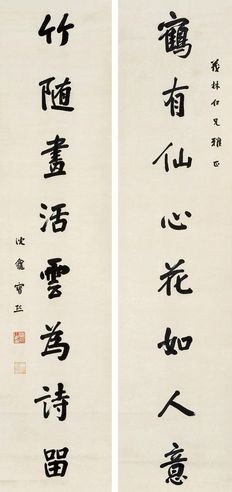 林仁兄雅正
鶴有仙心花如人意
竹随畫活雲為詩留
沈盦寶熙